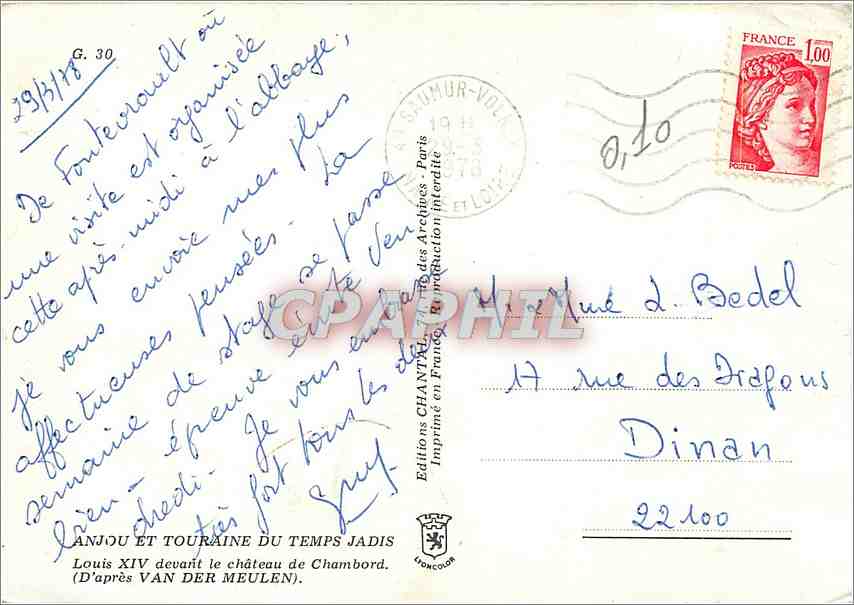 G. 30
29/3/78
De Fontevrault où
une visite est organisée
cette après-midi à l'abbaye,
je vous envoie mes plus
affectueuses pensées. La
semaine de stage se passe
bien - épreuve écrite Ven
dredi - Je vous embrasse
très fort tous les deux
ANJOU ET TOURAINE DU TEMPS JADIS
Louis XIV devant le château de Chambord.
(D'après VAN DER MEULEN).
Editions CHANTAL, des Archives - Paris
Imprimé en France - Reproduction interdite
LYONCOLOR
SAUMUR-VOLN
19 H
29-3
1978
ET LOIRE
0,10
FRANCE
1,00
POSTES
CPAPHIL
M. & Mme L. Bedel
17 rue des Fragons
Dinan
22100